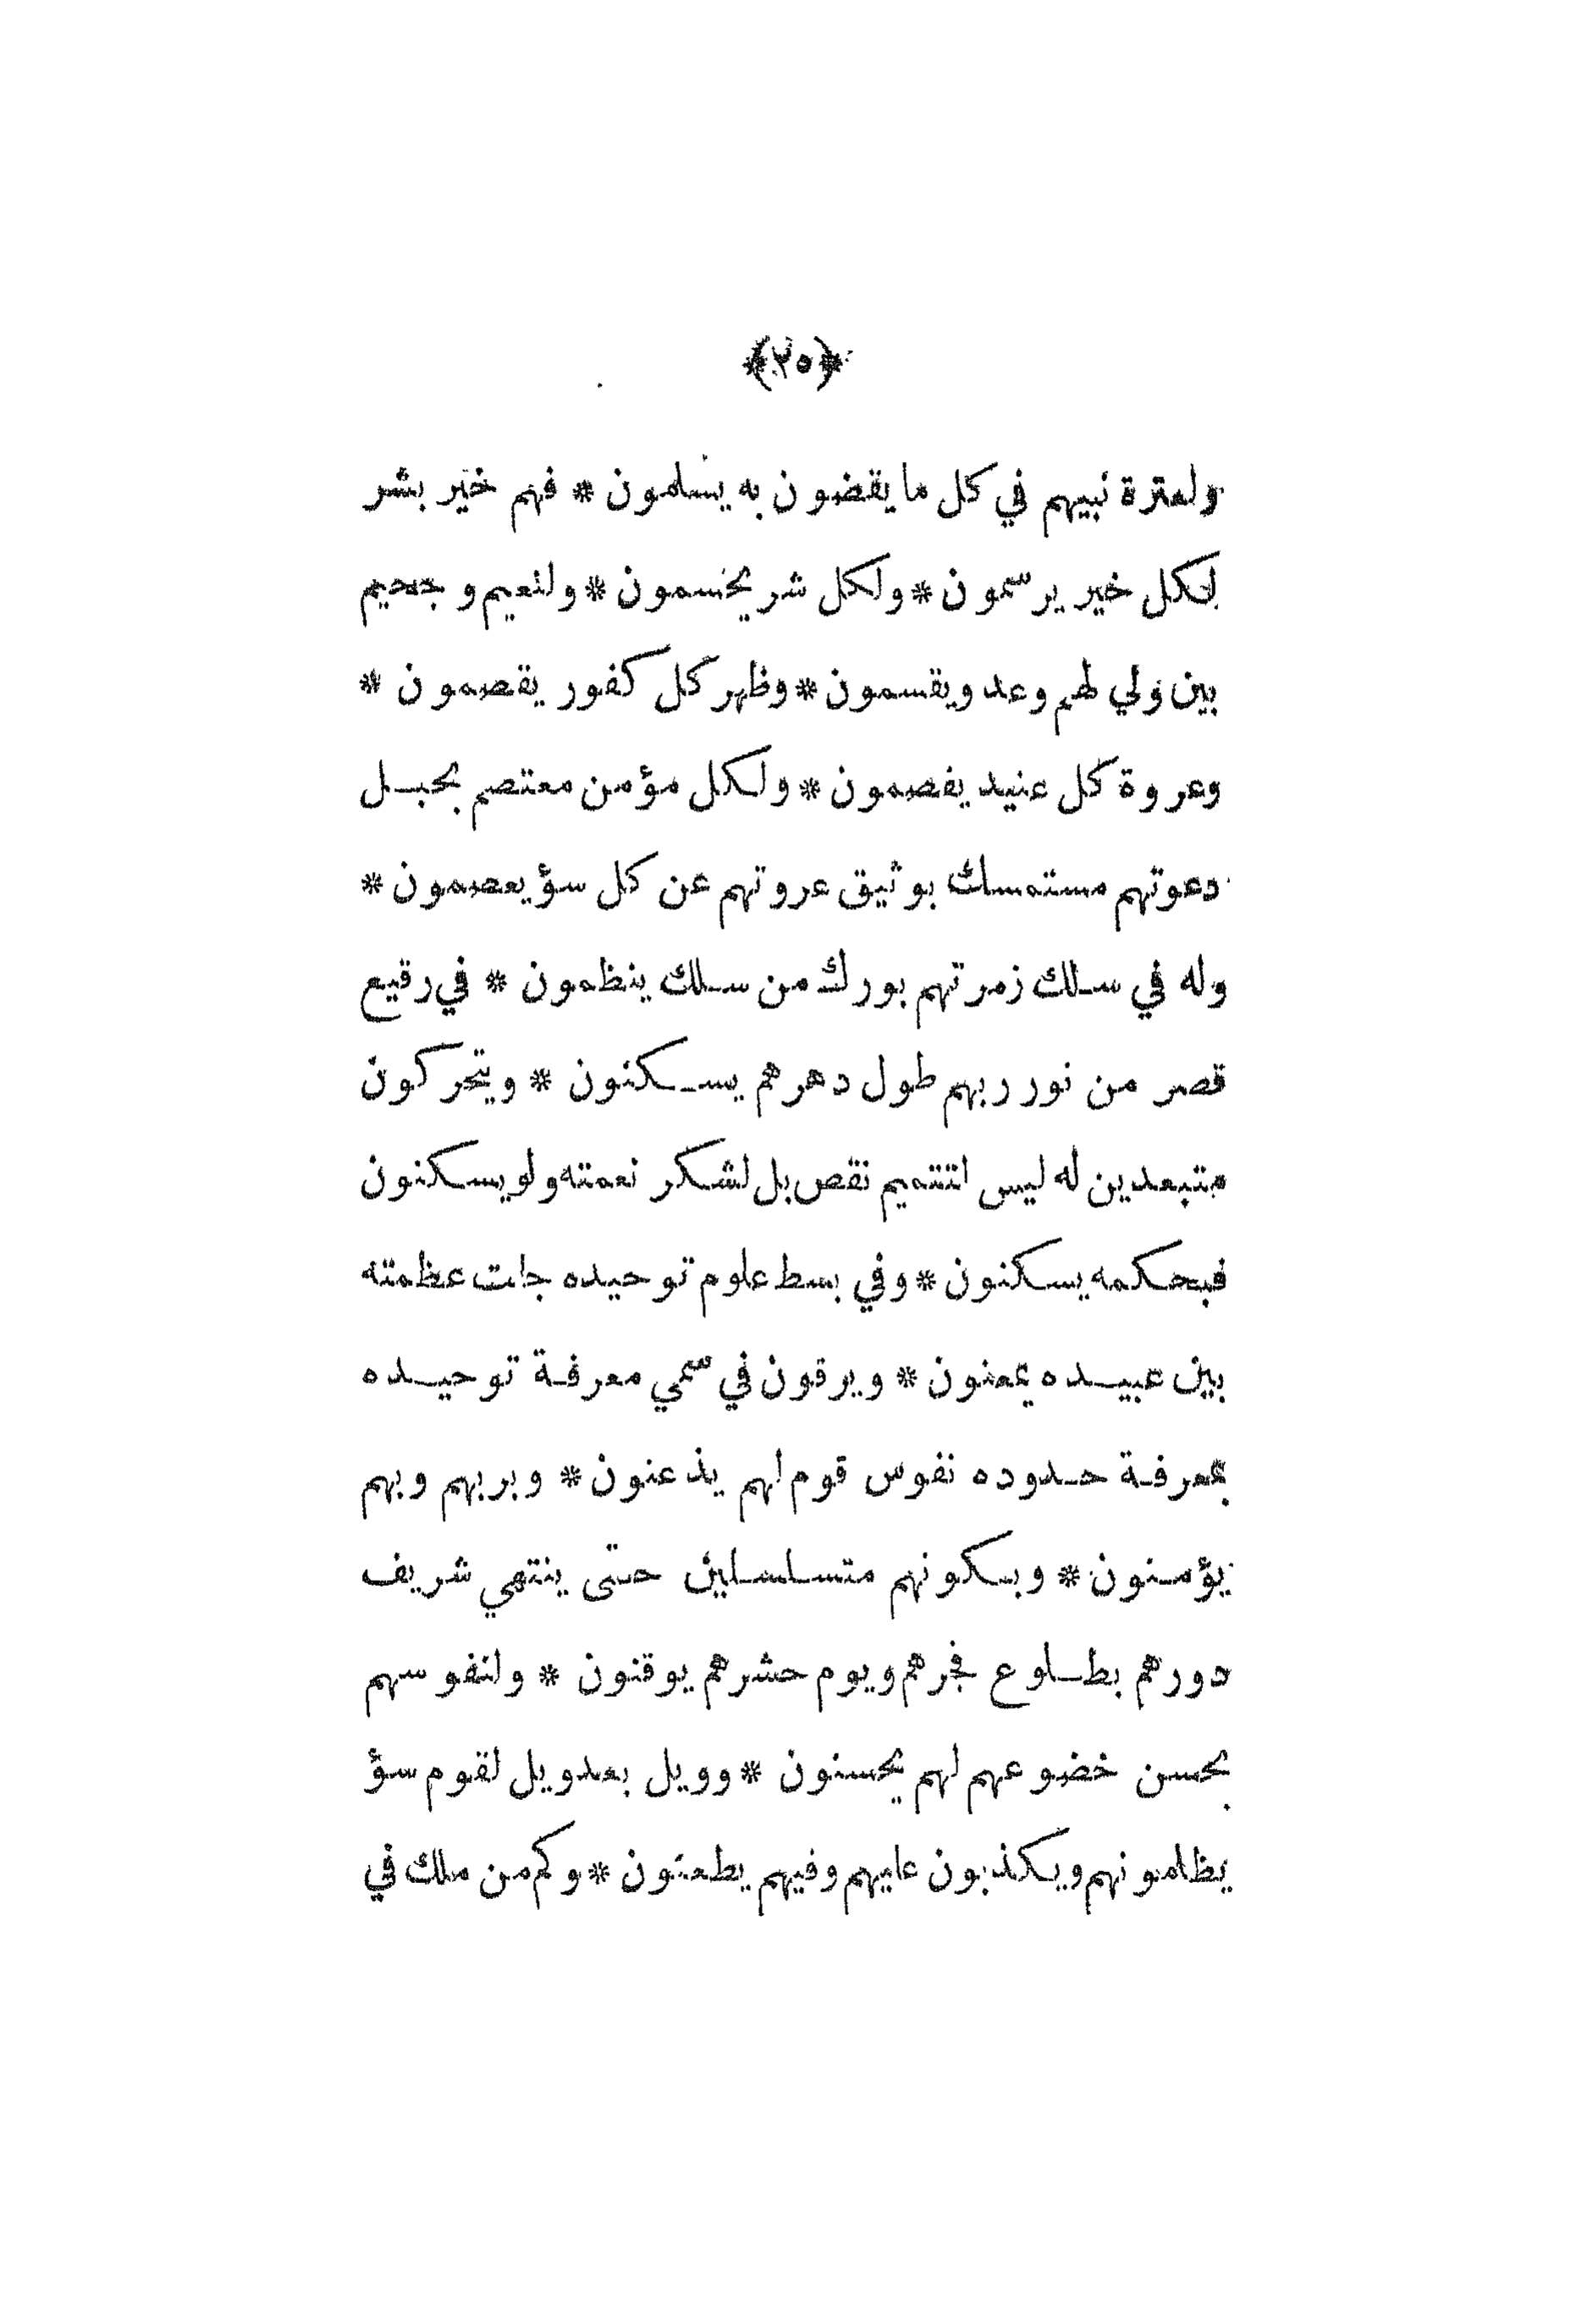 ﴿٢٥﴾
ولعترة نبيهم في كل ما يقضون به يسلمون * فهم خير بشر
لكل خير يرسمون * ولكل شر يحسمون * ولنعيم وجحيم
بين ولي لهم وعدو يقسمون * وظهر كل كفور يقصمون *
وعروة كل عنيد يفصمون * ولكل مؤمن معتصم بحبل
دعوتهم مستمسك بوثيق عروتهم عن كل سؤ يعصمون *
وله في سلك زمرتهم بورك من سلك ينظمون * في رقيع
قصر من نور ربهم طول دهرهم يسكنون * ويتحركون
متبعدين له ليس لتتميم نقص بل لشكر نعمته ولو يسكنون
فبحكمه يسكنون * وفي بسط علوم توحيده جلت عظمته
بين عبيده يمعنون * ويرقون في سمي معرفة توحيده
بمعرفة حدوده نفوس قوم لهم يذعنون * وبربهم وبهم
يؤمنون * وبكونهم متسلسلين حتى ينتهي شريف
دورهم بطلوع فجرهم ويوم حشرهم يوقنون * ولنفوسهم
بحسن خضوعهم لهم يحسنون * وويل بعد ويل لقوم سؤ
يظلمونهم ويكذبون عليهم وفيهم يطعنون * وكم من ملك في